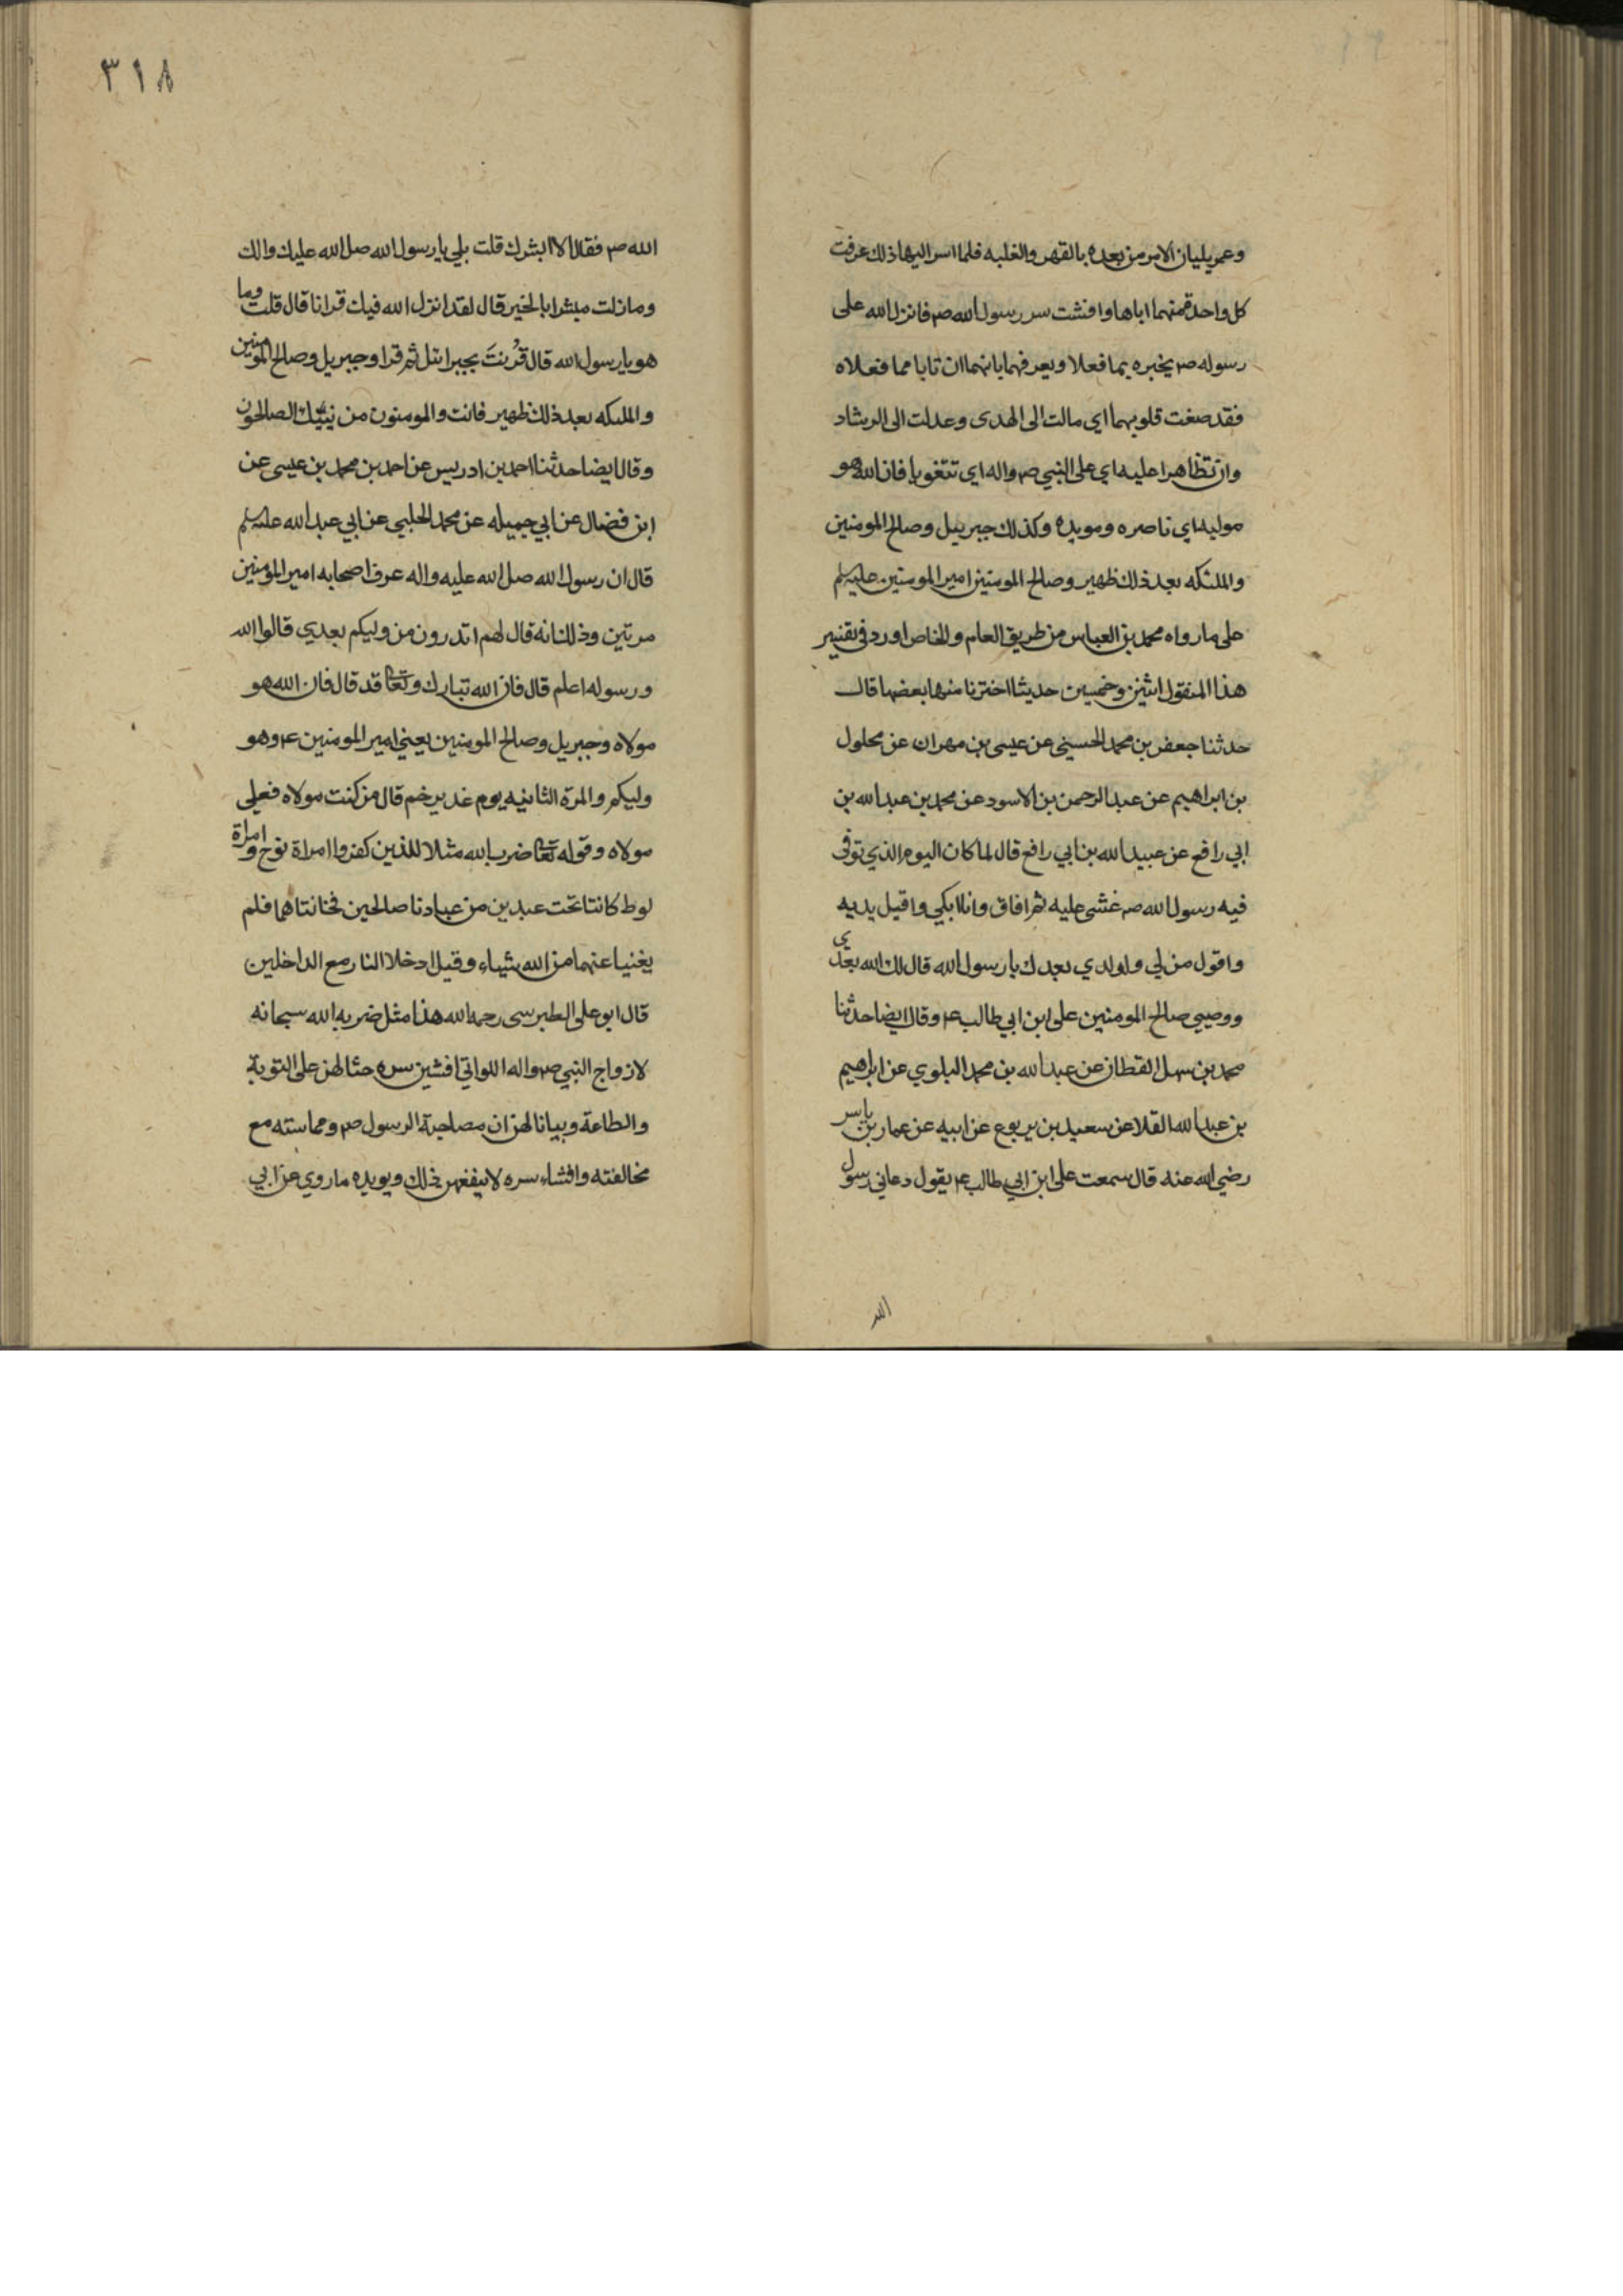 وعمر يليان الامر من بعده بالقهر والغلبه فلما اسر اليها ذلك عرفت
كل واحدة منهما اباها وافشت سر رسول الله صم فانزل الله على
رسوله صم يخبره بما فعلا ويعرفهما بانهما ان تابا مما فعلاه
فقد صغت قلوبهما اي مالت الى الهدى وعدلت الى الرشاد
وان تظاهرا عليه اي على النبي صم واله اي فان الله هو
موليه اي ناصره ومويده وكذلك جبرييل وصالح المومنين
والملئكه بعد ذلك ظهير وصالح المومنين امير المومنين عليه سلم
على ما رواه محمد بن العباس من طريق العام والخاص اورد في تفسير
هذا المنقول اثنين وخمسين حديثا اخترنا منها بعضها قال
حدثنا جعفر بن محمد الحسيني عن عيسى بن مهران عن محلول
بن ابراهيم عن عبد الرحمن بن الاسود عن محمد بن عبد الله بن
ابي رافع عن عبيد الله بن ابي رافع قال لما كان اليوم الذي توفى
فيه رسول الله صم غشى عليه ثم افاق وانا ابكي واقبل يديه
واقول من لي ولولدي بعدك يا رسول الله قال لك الله بعدي
ووصيي صالح المومنين على ابن ابي طالب عم وقال ايضا حدثنا
محمد بن سهل القطان عن عبد الله بن محمد البلوي عن ابراهيم
بن عبد الله القلا عن سعيد بن يربوع عن ابيه عن عمار بن ياسر
رضي الله عنه قال سمعت على ابن ابي طالب عم يقول دعاني رسول
الله
٣١٨
الله صم فقال الا ابشرك قلت بلي يا رسول الله صل الله عليك والك
وما زلت مبشرا بالخير قال لقد انزل الله فيك قرانا قال قلت وما
هو يا رسول الله قال قُرِنتَ بجبرائل ثم قرا وجبريل وصالح المومنين
والملىكه بعد ذلك ظهير فانت والمومنون من نبيك الصالحون
وقال ايضا حدثنا احمد بن ادريس عن احمد بن محمد بن عيسى عن
ابن فضال عن ابي جميله عن محمد الحلبي عن ابي عبد الله عليه سلم
قال ان رسول الله صل الله عليه واله عرف اصحابه امير المومنين
مرتين وذلك انه قال لهم اتدرون من وليكم بعدي قالوا الله
ورسوله اعلم قال فان الله تبارك وتعا قد قال فان الله هو
مولاه وجبريل وصالح المومنين يعني امير المومنين عم وهو
وليكم والمرة الثانيه يوم غدير خم قال من كنت مولاه فعلي
مولاه وقوله تعا ضرب الله مثلا للذين كفروا امراة نوح وامراة
لوط كانتا تحت عبدين من عبادنا صالحين فخانتاهما فلم
يغنيا عنهما من الله شياء وقيل ادخلا النار مع الداخلين
قال ابو على الطبرسى رحمه الله هذا مثل ضربه الله سبحانه
لازواج النبي صم واله اللواتي افشين سره حثا لهن على التوبة
والطاعة وبيانا لهن ان مصاحبة الرسول صم ومماسته مع
مخالفته وافشاء سره لا ينفعهن ذلك ويويده ما روي عن ابي